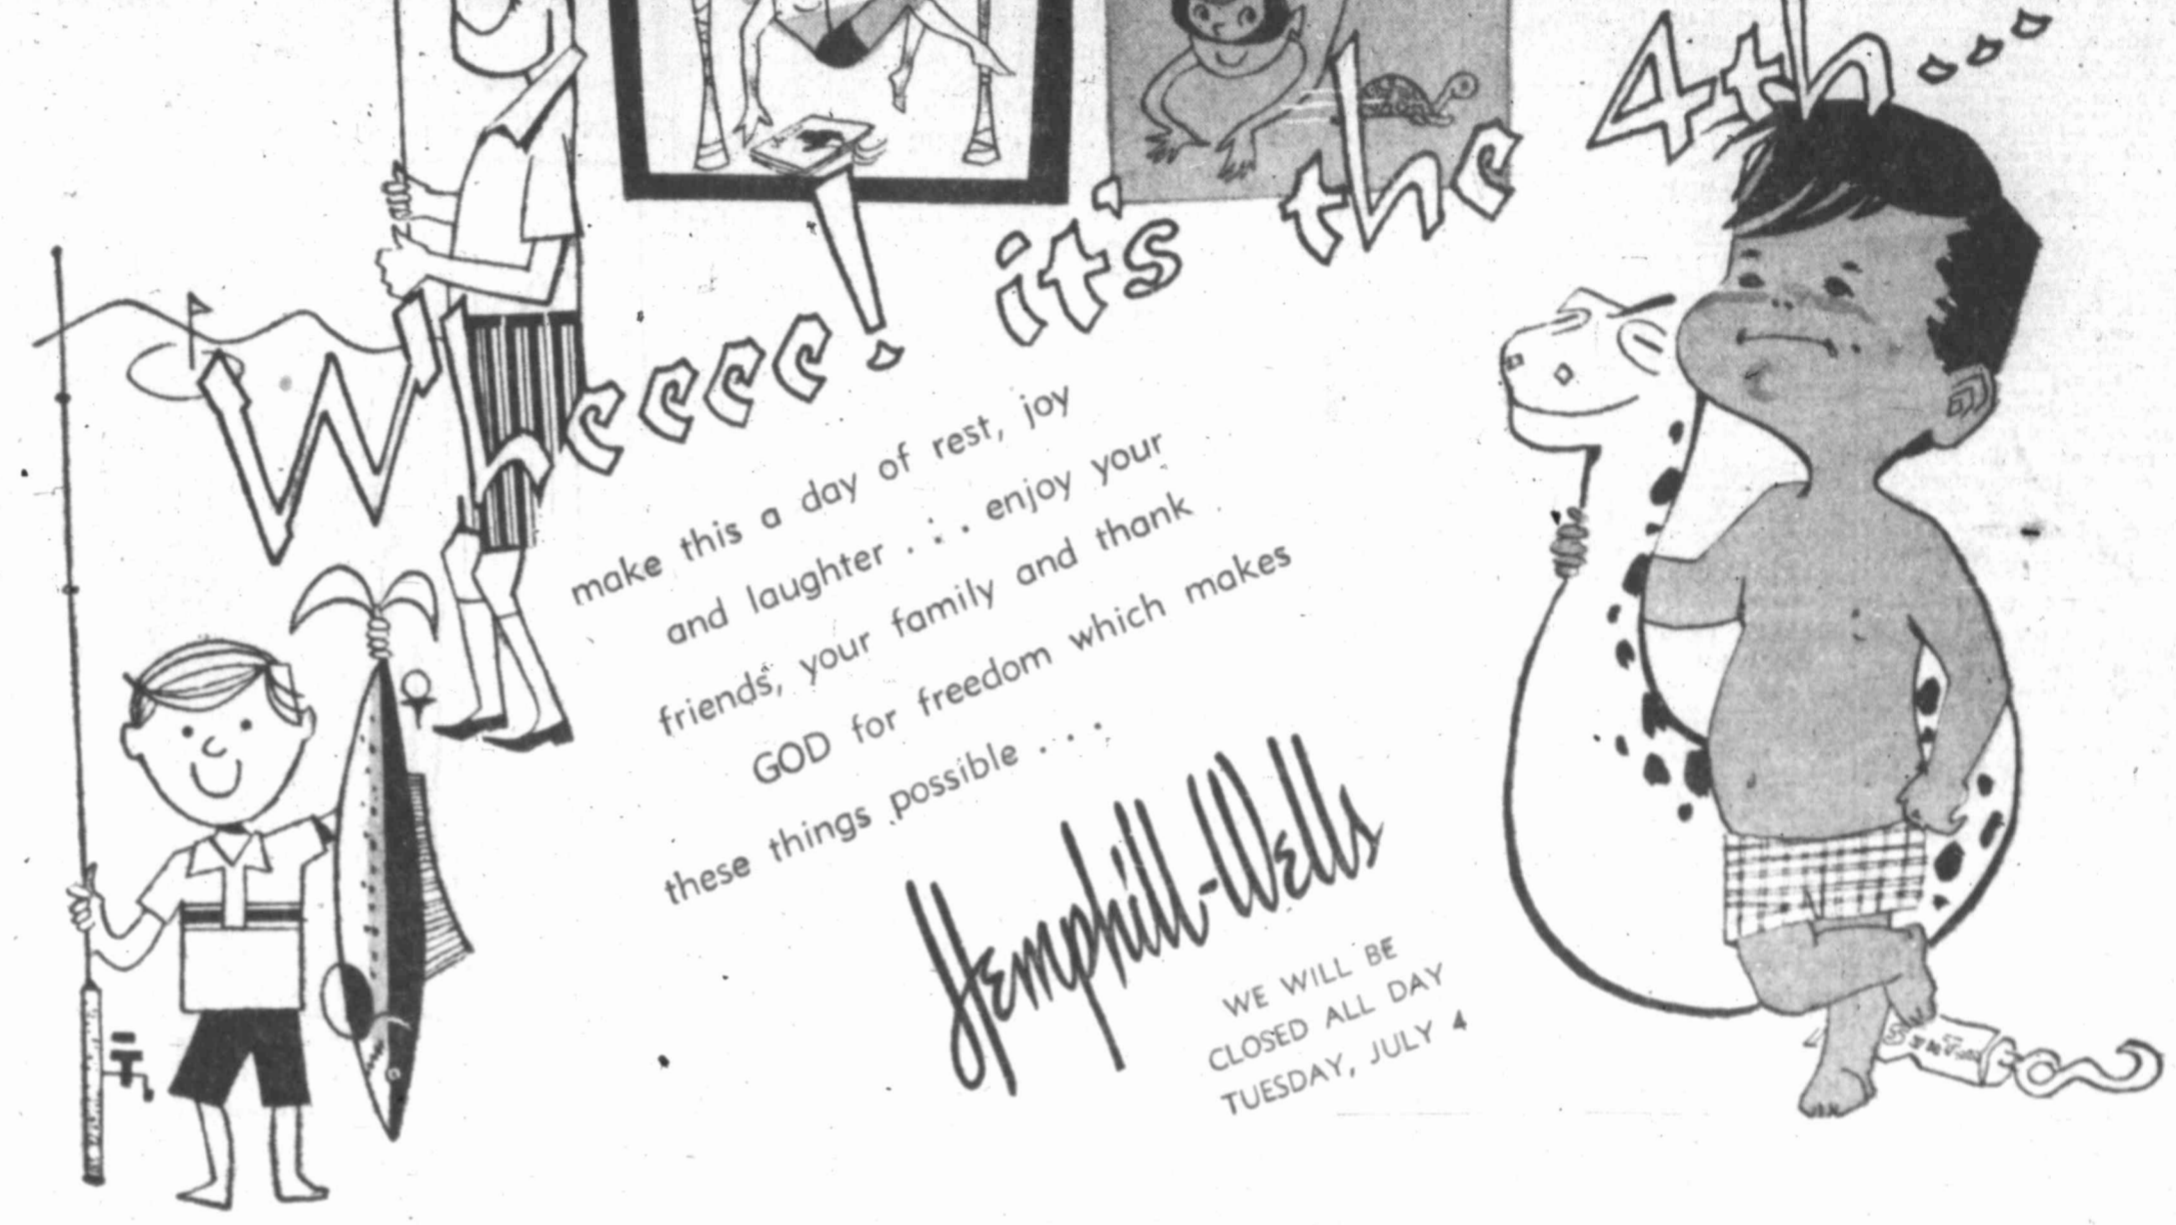 Wheeee! it's the 4th...
make this a day of rest, joy
and laughter . . . enjoy your
friends, your family and thank
GOD for freedom which makes
these things possible . . .
Hemphill-Wells
WE WILL BE
CLOSED ALL DAY
TUESDAY, JULY 4